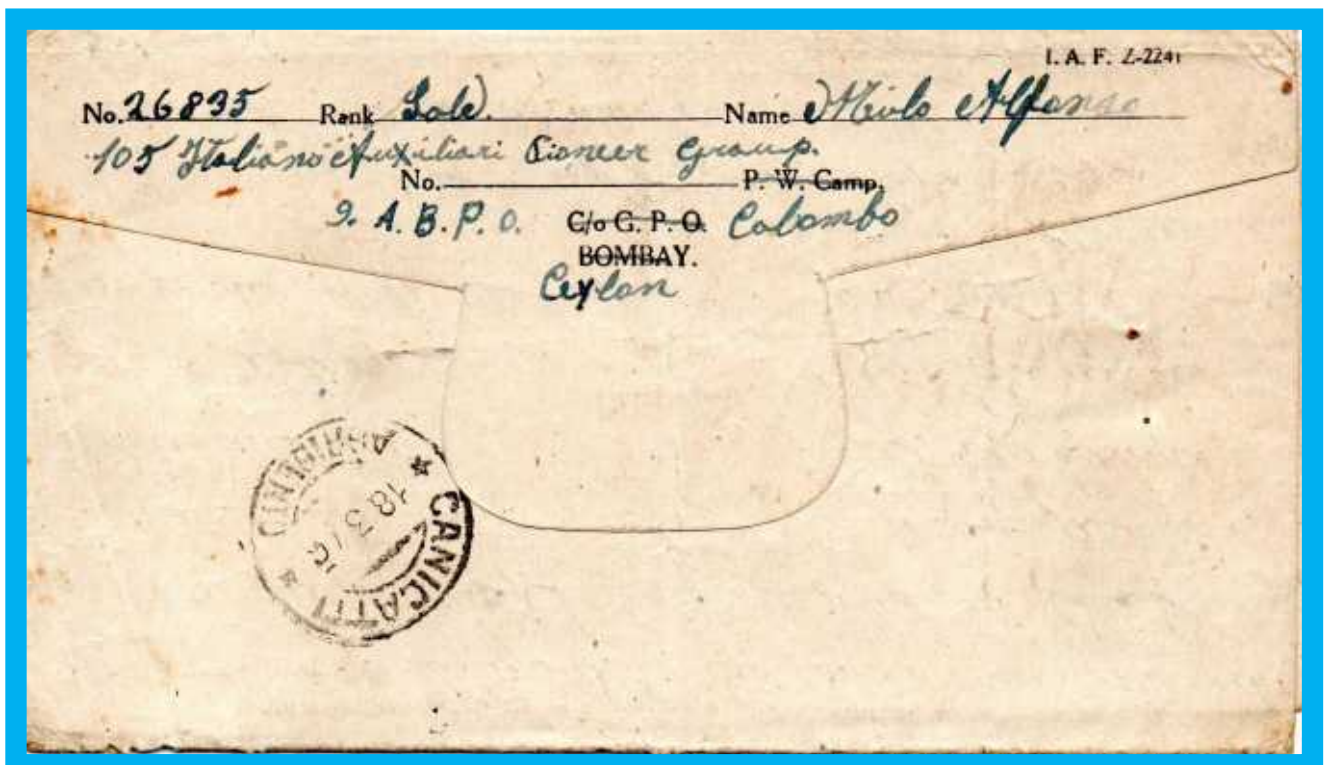 I. A. F. Z-2241
No. 26835 Rank Sold. Name Alfonso
105 Italiano Auxiliari Pioneer Group.
No. P. W. Camp.
9. A. B. P. O. C/o G. P. O. Colombo
BOMBAY.
Ceylan
* CANICATTI * AGRIGENTO
18 3